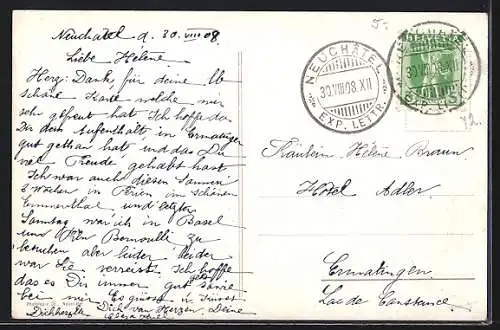 Neuchâtel d. 30 VIII 08.
Liebe Helene
Herz. Dank für deine lb
schöne Karte welche mir
sehr gefreut hat Ich hoffe das
Dir dem Aufenthalt in Ermatingen
gut gethan hat und das Du
viel Freude gehabt hast
Ich war auch diesen Sommer
2 Wochen in Ferien im schönen
Emmenthal und letzten
Sonntag war ich in Basel
und Frln Bernoulli zu
besuchen aber leider leider
war Sie verreist. Ich hoffe
das es Dir immer gut geht
bei mir Es grüsst u. küsst
Dich von Herzen, Deine
5.-
NEUCHÂTEL
30.VIII08.XII
EXP. LETTR.
HELVETIA
30.VIII08.XII
Fräulein Hélène Braun
Hôtel Adler
Ermatingen
Lac de Constance